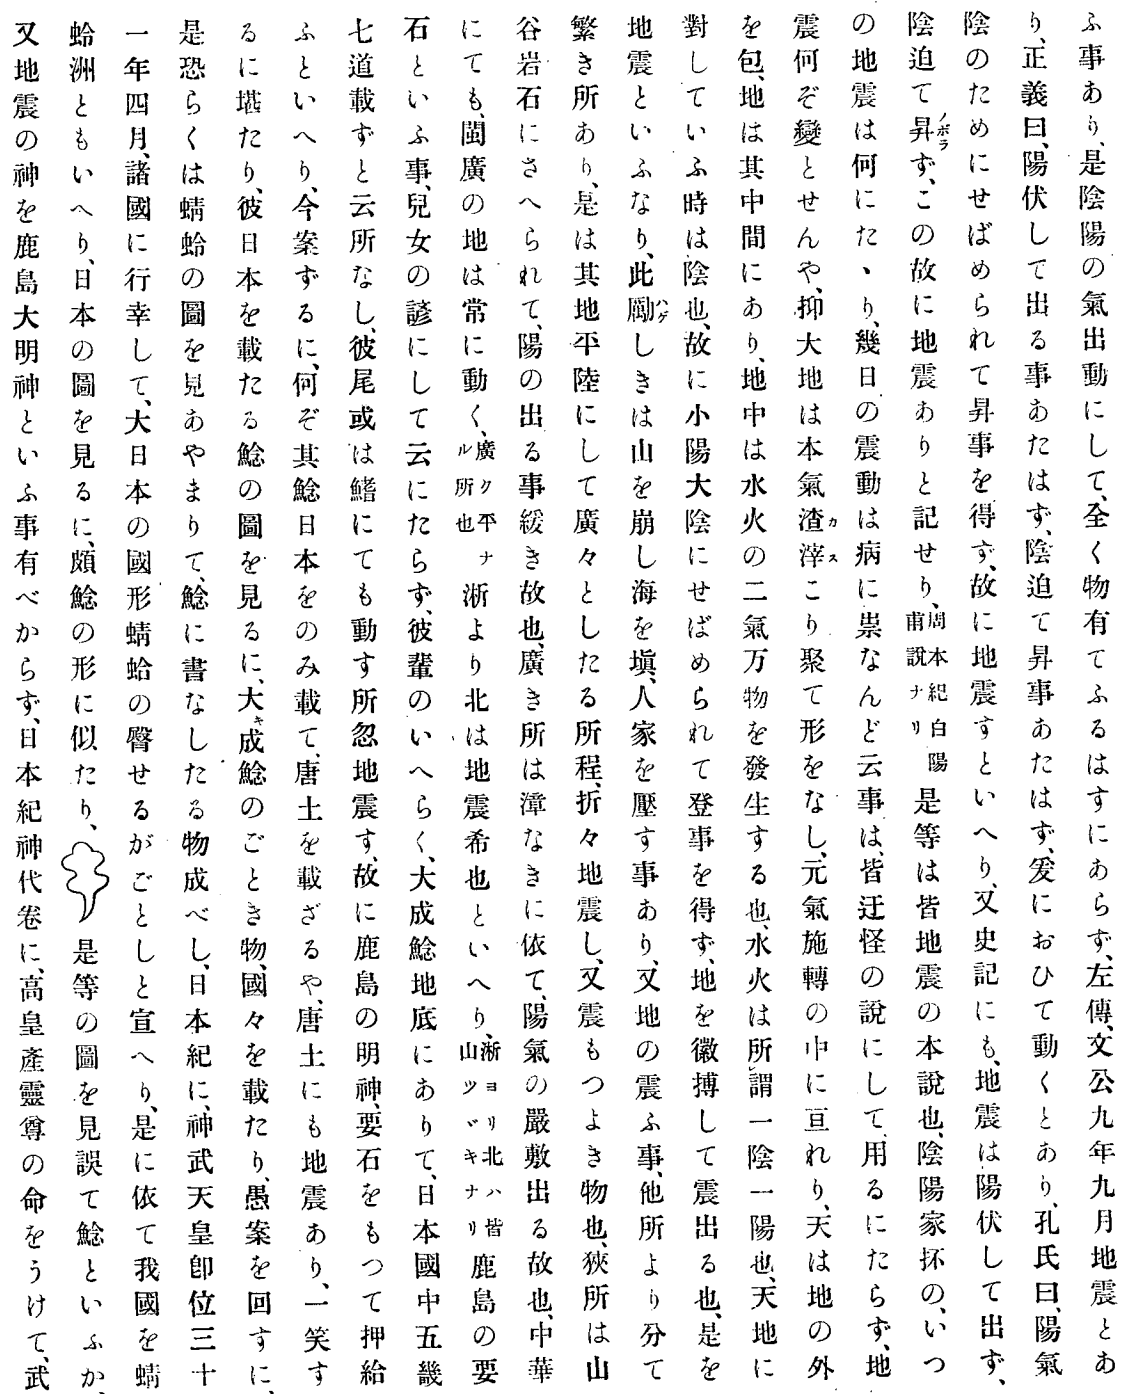 ふ事あり、是陰陽の氣出動にして、全く物有てふるはすにあらず、左傳、文公九年九月地震とあ
り、正義曰、陽伏して出る事あたはず、陰迫て昇事あたはず、爰におひて動くとあり、孔氏曰、陽氣
陰のためにせばめられて昇事を得ず、故に地震すといへり、又史記にも、地震は陽伏して出ず、
陰迫て昇ノボラず、この故に地震ありと記せり、周本紀白陽甫說ナリ是等は皆地震の本說也、陰陽家抔の、いつ
の地震は何にたゝり、幾日の震動は病に祟なんど云事は、皆迂怪の說にして、用るにたらず、地
震何ぞ變とせんや、抑大地は本氣渣滓カスこり聚て形をなし、元氣施轉の中に亘れり、天は地の外
を包、地は其中間にあり、地中は水火の二氣万物を發生する也、水火は所謂一陰一陽也、天地に
對していふ時は陰也、故に小陽大陰にせばめられて登事を得ず、地を徽搏して震出る也、是を
地震といふなり、此勵ハゲしきは山を崩し海を塡、人家を壓す事あり、又地の震ふ事、他所より分て
繁き所あり、是は其地平陸にして廣々としたる所程、折々地震し、又震もつよき物也、狹所は山
谷岩石にさへられて、陽の出る事緩き故也、廣き所は漳なきに依て、陽氣の嚴敷出る故也、中華
にても、閩廣の地は常に動く、廣ク平ナル所也淅より北は地震希也といへり、淅ヨリ北ハ皆山ツヾキナリ鹿島の要
石といふ事、兒女の諺にして云にたらず、彼輩のいへらく、大成鯰地底にありて、日本國中五畿
七道載ずと云所なし、彼尾或は鰭にても動す所忽地震す、故に鹿島の明神、要石をもつて押給
ふといへり、今案ずるに、何ぞ其鯰日本をのみ載て、唐土を載ざるや、唐土にも地震あり、一笑す
るに堪たり、彼日本を載たる鯰の圖を見るに、大キ成鯰のごとき物、國々を載たり、愚案を回すに、
是恐らくは蜻蛉の圖を見あやまりて、鯰に書なしたる物成べし、日本紀に、神武天皇卽位三十
一年四月、諸國に行幸して、大日本の國形蜻蛤の臀せるがごとしと宣へり、是に依て我國を蜻
蛉洲ともいへり、日本の圖を見るに、頗鯰の形に似たり、是等の圖を見誤て鯰といふか、
又地震の神を鹿島大明神といふ事有べからず、日本紀神代卷に、高皇產靈尊の命をうけて、武